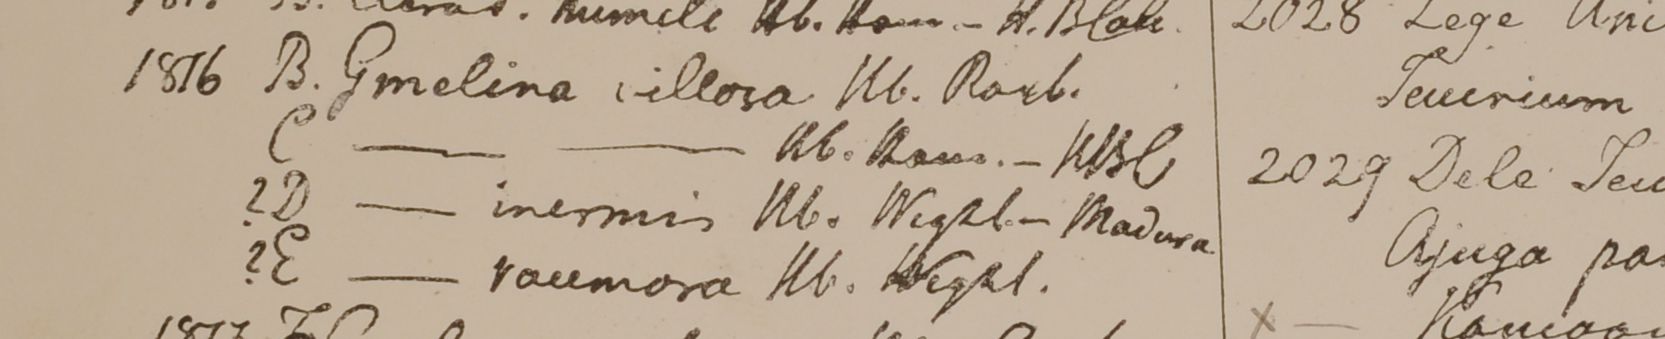 B. humile Hb. Ham. - H. B. Calc.
1816 B. Gmelina villosa Hb. Roxb.
C — — Hb. Ham. - HBC
? D — inermis Hb. Wight - Madura
? E — racemosa Hb. Wight.
2028 Lege
Teucrium
2029 Dele Teu
Ajuga pa
x — Kamaon